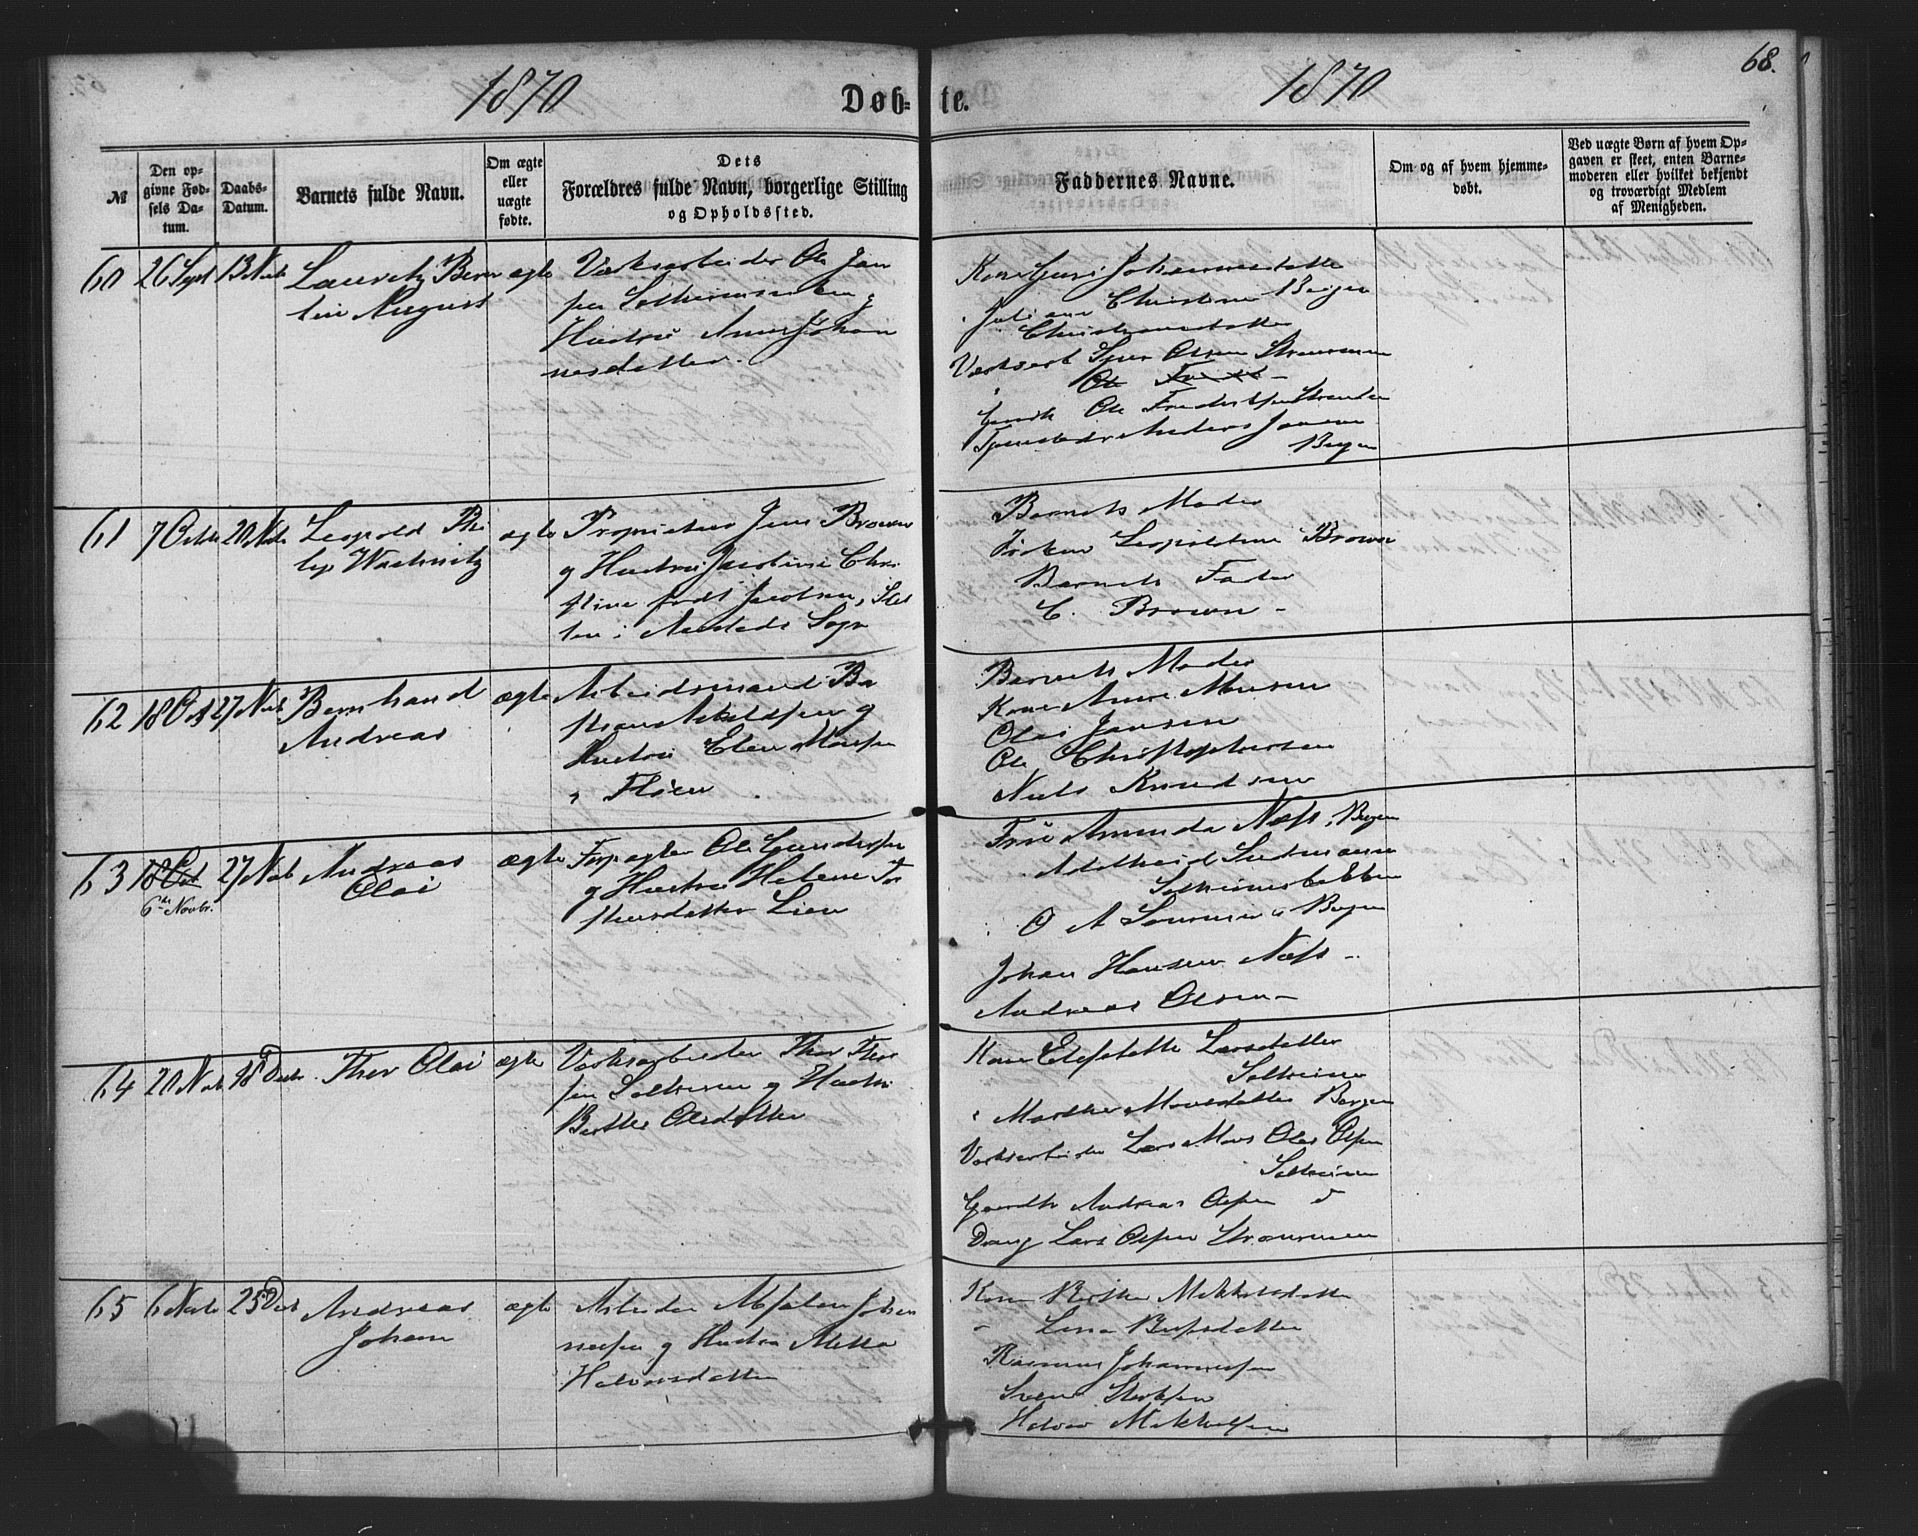 1870
Døb-
te.
1870
68.
№
Den op-
givne Fød-
sels Da-
tum.
Daabs-
Datum.
Barnets fulde Navn.
Om ægte
eller
uægte
fødte.
Dets
Forældres fulde Navn, borgerlige Stilling
og Opholdssted.
Faddernes Navne.
Om og af hvem hjemme-
døbt.
Ved uægte Børn af hvem Op-
gaven er skeet, enten Barne-
moderen eller hvilket bekjendt
og troværdigt Medlem
af Menigheden.
60 26 Sept 13 Nov
Lauritz Bern
tin August
ægte
Værksarbeider Ole Jan
sen Solheimsviken g
Hustru Anna Johan
nesdatter.
Kone Guri Johannesdatter
Bergen
Juliane Christine
Christiansdatter
Værksarb Sjur Olsen Strømmen
Ole
Gaardb Ole
Anders Jansen
Bergen
61 7 Octbr 20 Nov
Leopold Phi
lip Wachnitz
ægte
Proprietær Jens Brown
g Hustru Jacobine Chri
stine født Jacobsen, Slet
ten i Aarstads Sogn
Barnets Moder
Frøken Leopoldine Brown
Barnets Fader
C. Brown -
62 18 Oct 27 Nov
Bernhard
Andreas
ægte
Arbeidsmand Ba
g
Hustru Elen Monsen
Fløen
Barnets Moder
Kone Anne Monsen
Olai Jansen
Ole Christophersen
Niels Knudsen
63 18 Oct 27 Nov
6te Novbr.
Andreas
Olai
ægte
Forpagter Ole Gundersen
g Hustru Helene Tor
stensdatter Lien
Frue Amunda Næss, Bergen
Adelheid
Solheimsbakken
O A Sørensen Bergen
Johan Hansen Næss -
Andreas Olsen -
64 20 Nov 18 Decbr.
Thor Olai
ægte
Værksarbeider Thor Thor
sen Solheim g Hustru
Berthe Olsdatter
Kone Larsdatter
Solheim
Marthe Monsdatter Bergen
Værksarbeider Lars Mons Olai Olsen
Solheim
Gaardb Andreas Olsen
Dreng Lars Olsen Strømmen
65 6 Nov 25 Decb
Andreas
Johan
ægte
Arbeider Absalon Johan
nesen g Hustru Metta
Halvorsdatter
Kone Berthe Mikkelsdatter
Lina
Rasmus Johannessen
Svend
Halvor Mikkelsen